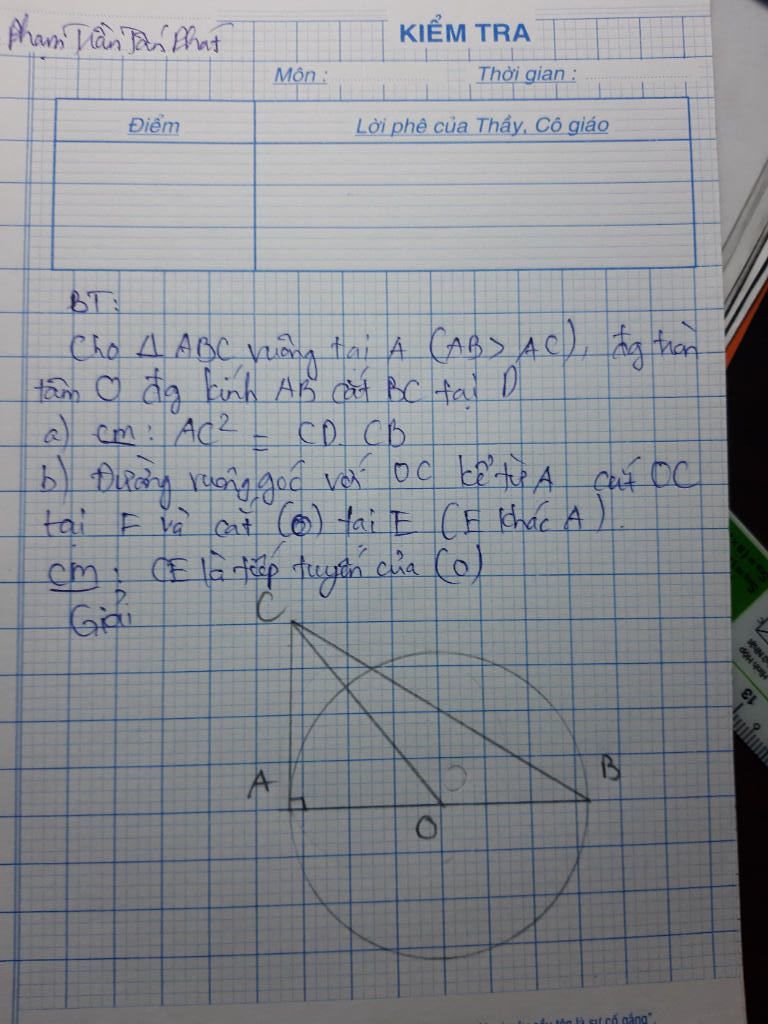 Phạm Trần Tấn Phát
KIỂM TRA
Môn : Thời gian :
Điểm Lời phê của Thầy, Cô giáo
BT:
Cho Δ ABC vuông tại A (AB > AC), đg tròn
tâm O đg kính AB cắt BC tại D
a) cm : AC² = CD. CB
b) Đường vuông góc với OC kẻ từ A cắt OC
tại F và cắt (O) tại E (E khác A).
cm : CE là tiếp tuyến của (O)
Giải
C
A
B
O
O
13
là sự cố gắng".